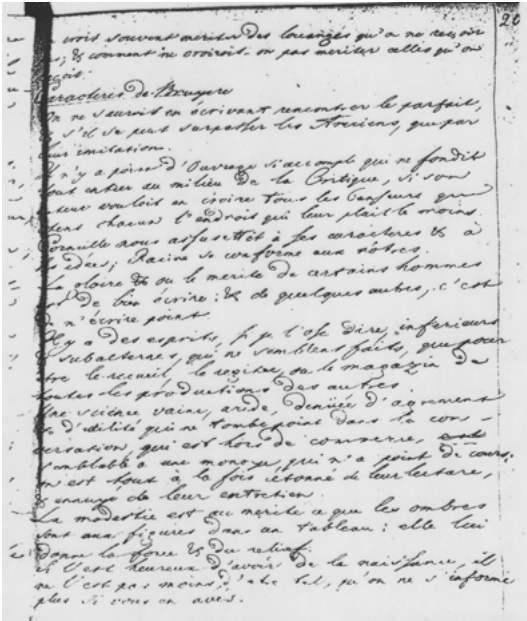 20
croit souvent meriter des louanges qu'on ne reçoit
; & comment ne croiroit-on pas meriter celles qu'on
reçoit.
Caracteres de Bruyere
On ne sauroit en écrivant rencontrer le parfait,
& s'il se peut surpasser les Anciens, que par
leur imitation.
Il n'y a point d'Ouvrage si accompli qui ne fondit
tout entier au milieu de la Critique, si son
auteur vouloit en croire tous les Censeurs qui
ôtent chacun l'endroit qui leur plait le moins.
Corneille nous assujettit à ses caracteres & à
ses idées; Racine se conforme aux nôtres.
La gloire & ou le merite de certains hommes
est de bien écrire: & de quelques autres, c'est
de n'écrire point.
Il y a des esprits, si je l'ose dire, inferieurs
& subalternes, qui ne semblent faits, que pour
être le recueil, le registre, ou le magazin de
toutes les productions des autres.
Une science vaine, aride, denüée d'agrement
& d'utilité qui ne tombe point dans la con-
versation, qui est hors de commerce,
semblable à une monoye, qui n'a point de cours.
on est tout à la fois étonné de leur lecture,
& ennuyé de leur entretien.
La modestie est au merite ce que les ombres
sont aux figures dans un tableau: elle lui
donne la force & du relief.
S'il est heureux d'avoir de la naissance, il
ne l'est pas moins d'être tel, qu'on ne s'informe
plus si vous en aves.